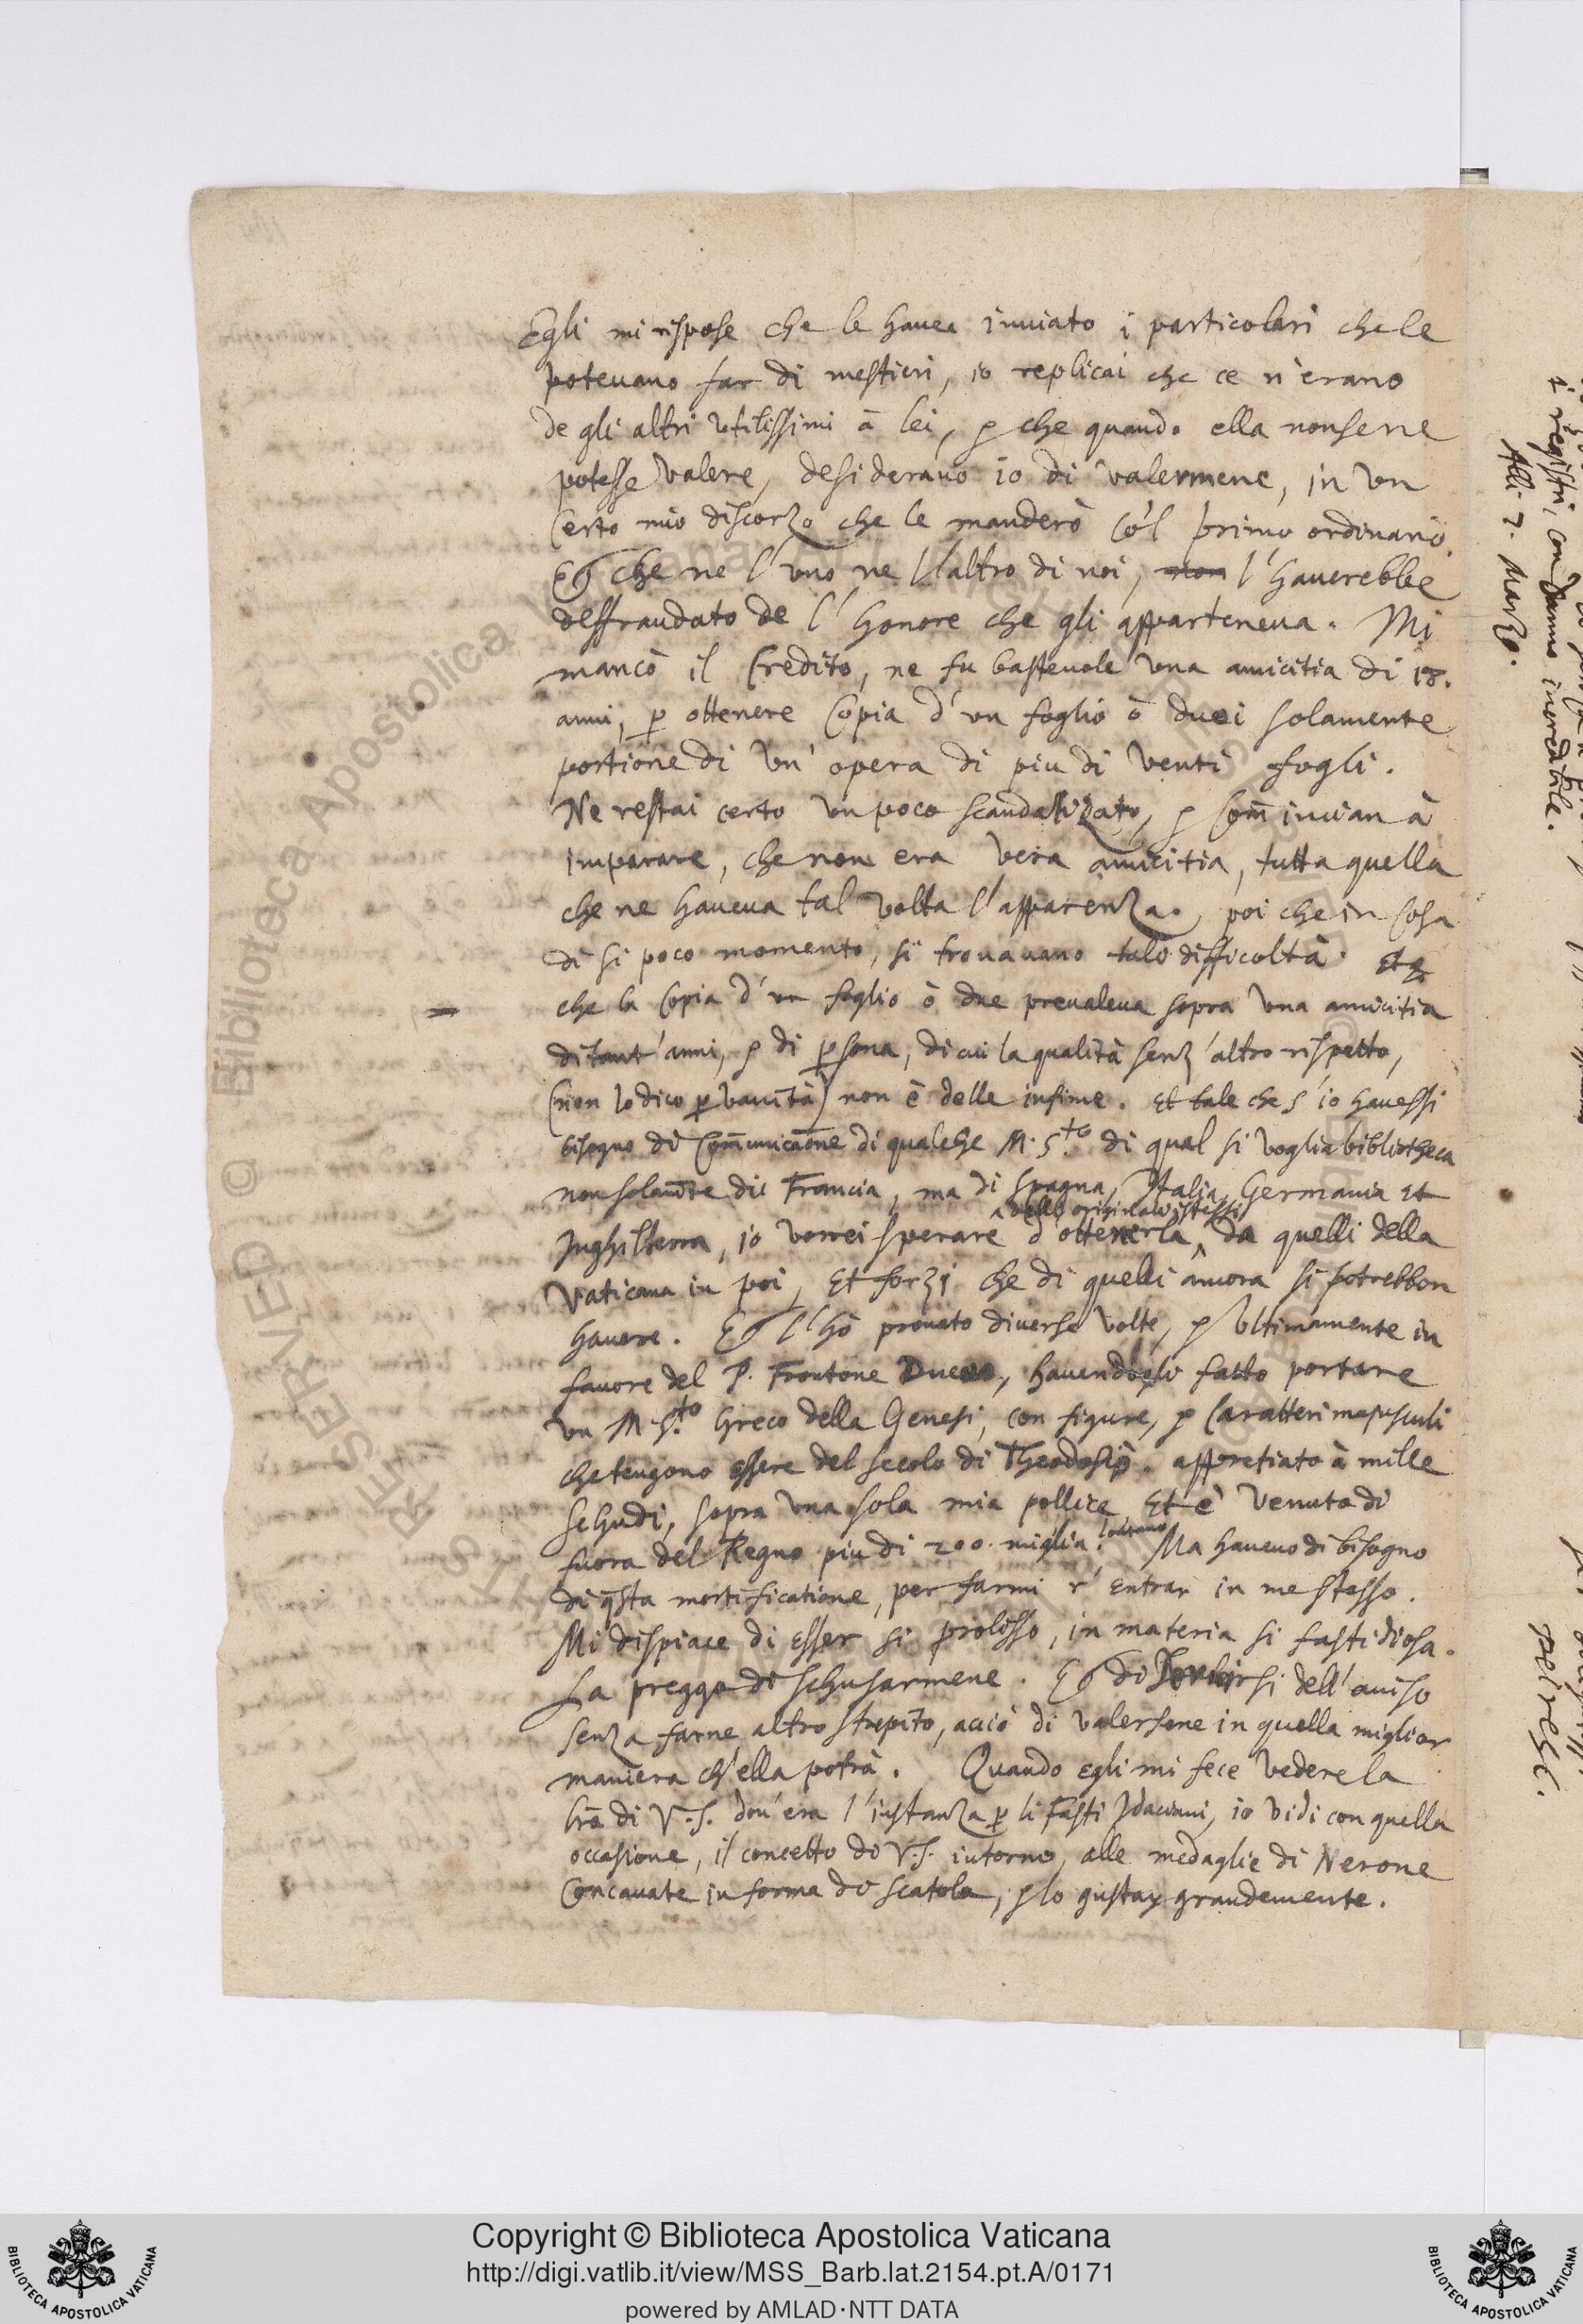 Egli mi rispose che le havea inviato i particolari che le
potevano far di mestieri, io replicai che ce n'erano
de gli altri utilissimi à lei, & che quando ella non sene
potesse valere, desideravo io di valermene, in un
certo mio discorzo che le manderò co'l primo ordinario.
Et che ne l'uno ne l'altro di noi, non l'haverebbe
deffraudato de l'honore che gli apparteneva. Mi
mancò il credito, ne fu bastevole una amicitia di 18.
anni, p ottenere copia d'un foglio ò duoi solamente
portione di un' opera di piu di venti fogli.
Ne restai certo un poco scandalizato, & com̄incian à
imparare, che non era vera amicitia, tutta quella
che ne haveva tal volta l'apparenza. poi che in cosa
di si poco momento, si trovavano tale difficoltà. Et
che la copia d'un foglio ò due prevaleva sopra una amicitia
di tant'anni, & di psona, di cui la qualità senz'altro rispetto,
(non lo dico p vanità) non è delle infime. Et tale che s'io havessi
bisogno di com̄unicāone di qualche M.S.to di qual si voglia bibliotheca
non solam̄te di Francia, ma di Spagna, Italia, Germania et
delli originali istessi
Inghilterra, io vorrei sperare d'ottenerla, da quelli della
Vaticana in poi, Et forzi che di quelli ancora si potrebbon
havere. Et l'hò provato diverse volte, & ultimamente in
favore del P. Frontone Duceo, havendogli fatto portare
un M.S.to Greco della Genesi, con figure, & caratteri majusculi
che tengono essere del secolo di Theodosio. appretiato à mille
schudi, sopra una sola mia pollice Et è venuto di
fuora del Regno piu di 200. miglia lontano. Ma havevo di bisogno
di q̄sta mortificatione, per farmi r'entrar in me stesso.
Mi dispiace di esser si prolisso, in materia si fastidiosa.
La preggo di schusarmene. Et di servirsi dell'aviso
senza farne altro strepito, acciò di valersene in quella miglior
maniera ch'ella potrà. Quando egli mi fece vedere la
lrā di V.S. dov'era l'instanza p li Fasti Idaciani, io vidi con quella
occasione, il concetto di V.S. intorno, alle medaglie di Nerone
Concavate in forma di scatola, & lo gustay grandemente.
i registri, con danno incredibile.
Alli 7. Marzo.
Copyright © Biblioteca Apostolica Vaticana
http://digi.vatlib.it/view/MSS_Barb.lat.2154.pt.A/0171
powered by AMLAD·NTT DATA
BIBLIOTECA APOSTOLICA VATICANA
BIBLIOTECA APOSTOLICA VATICANA